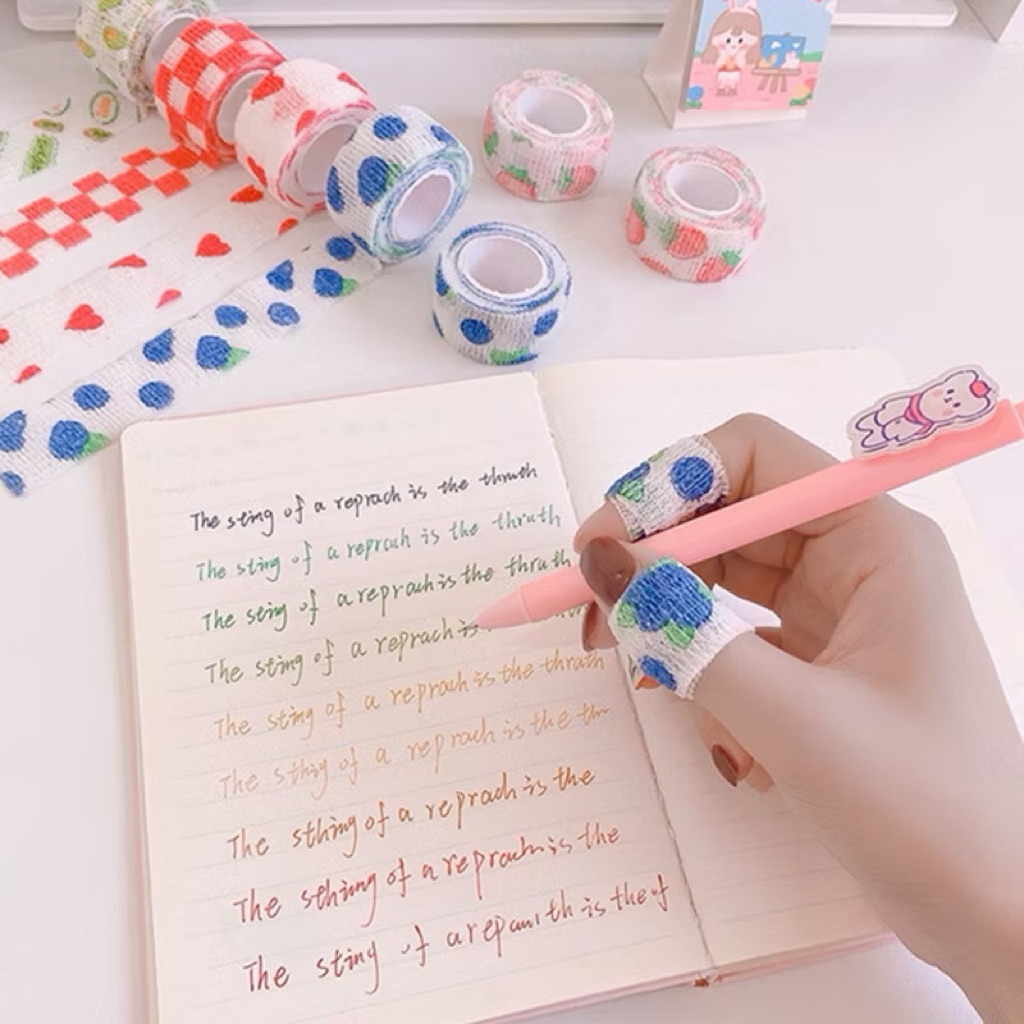 The sting of a reprach is the thruth
The sting of a reprach is the thrath
The sting of a reprach is the thrath
The sting of a reprach is
The sting of a reprach is the thrath
The sthing of a reprach is the thr
The sthing of a reprach is the
The sthing of a reprach is the
The sting of a is the of